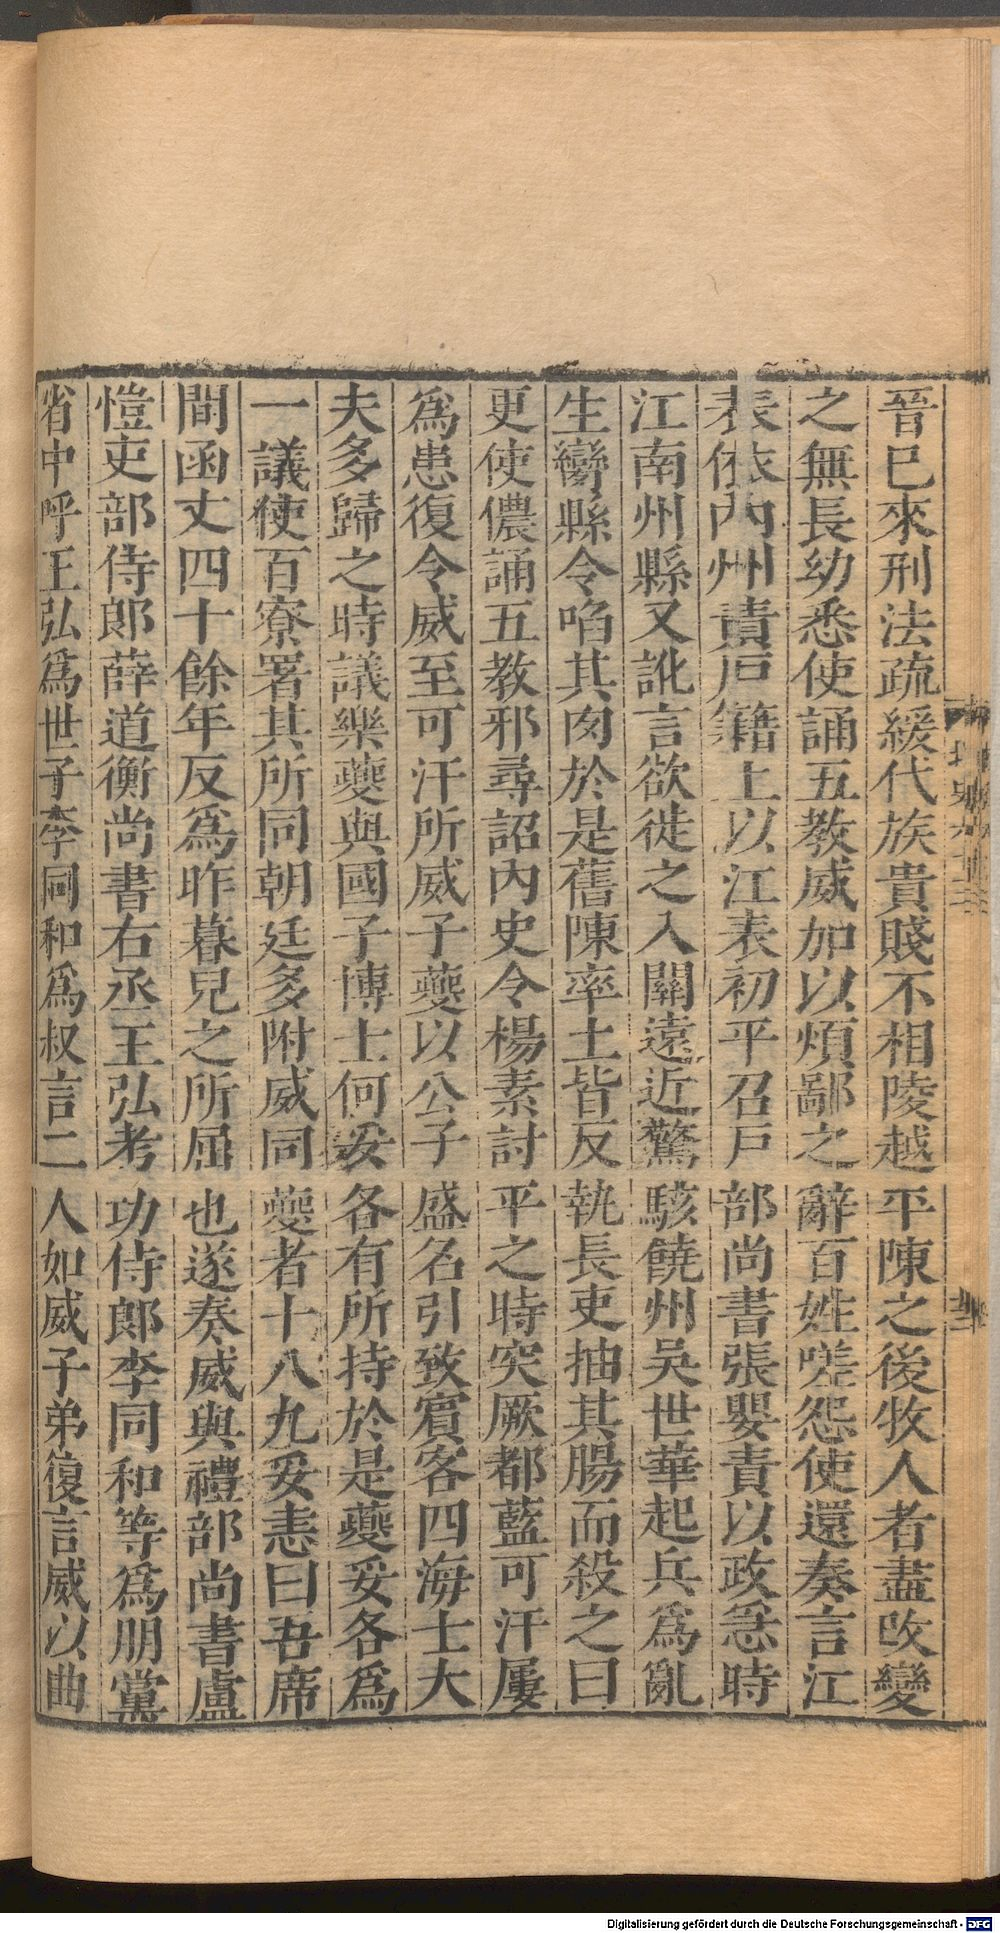 晉已來刑法疏緩代族貴賤不相陵越平陳之後牧人者盡改變
之無長幼悉使誦五教威加以煩鄙之辭百姓嗟怨使還奏言江
表依內州責戶籍上以江表初平召戶部尚書張嬰責以政急時
江南州縣又訛言欲徙之入關遠近驚駭饒州吳世華起兵爲亂
生臠縣令啗其肉於是舊陳率土皆反執長吏抽其腸而殺之曰
更使儂誦五教邪尋詔內史令楊素討平之時突厥都藍可汗屢
爲患復令威至可汗所威子夔以公子盛名引致賓客四海士大
夫多歸之時議樂夔與國子博士何妥各有所持於是夔妥各爲
一議使百寮署其所同朝廷多附威同夔者十八九妥恚曰吾席
間函丈四十餘年反爲昨暮兒之所屈也遂奏威與禮部尚書盧
愷吏部侍郎薛道衡尚書右丞王弘考功侍郎李同和等爲朋黨
省中呼王弘爲世子李同和爲叔言二人如威子弟復言威以曲
Digitalisierung gefördert durch die Deutsche Forschungsgemeinschaft - DFG